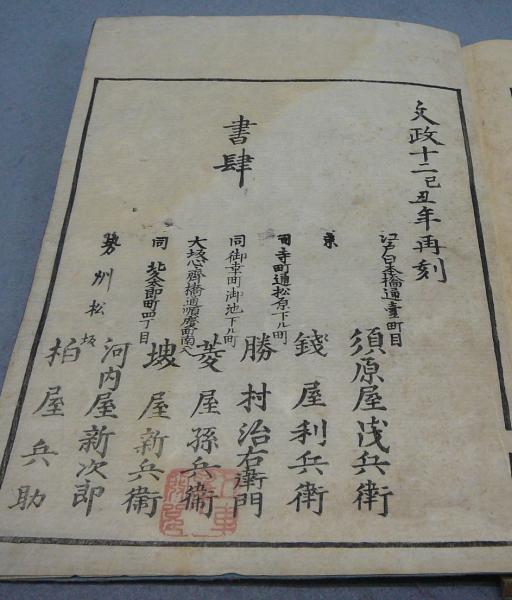 文政十二己丑年再刻
書肆
江戸日本橋通壹町目
須原屋茂兵衛
京
寺町通松原下ル町
錢屋利兵衛
同御幸町御池下ル町
勝村治右衛門
大坂心齋橋通順慶町南入
菱屋孫兵衛
同
北久太郎町四丁目
堺屋新兵衛
河内屋新次郎
勢州松坂
柏屋兵助